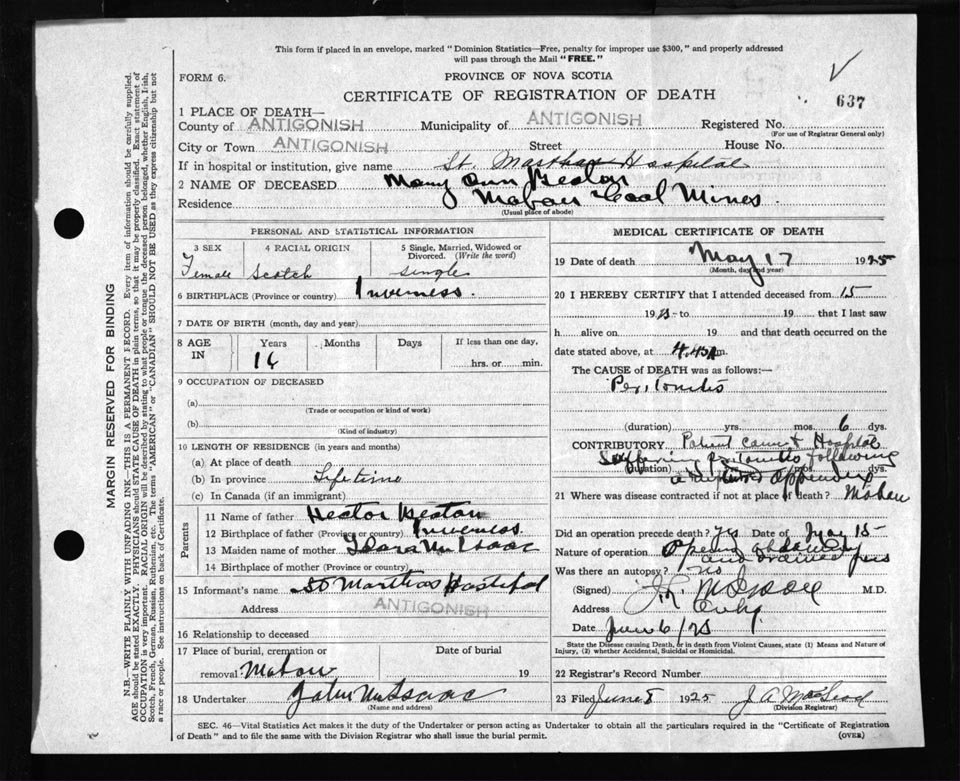 This form if placed in an envelope, marked "Dominion Statistics—Free, penalty for improper use $300," and properly addressed
will pass through the Mail "FREE."
FORM 6.
PROVINCE OF NOVA SCOTIA
CERTIFICATE OF REGISTRATION OF DEATH
637
1 PLACE OF DEATH—
County of ANTIGONISH Municipality of ANTIGONISH Registered No.
(For use of Registrar General only)
City or Town ANTIGONISH Street House No.
If in hospital or institution, give name St. Marthas Hospital
2 NAME OF DECEASED Mary Ann Beaton
Residence Mabou Coal Mines
(Usual place of abode)
PERSONAL AND STATISTICAL INFORMATION
3 SEX 4 RACIAL ORIGIN 5 Single, Married, Widowed or
Divorced. (Write the word)
Female Scotch single
6 BIRTHPLACE (Province or country) Inverness.
7 DATE OF BIRTH (month, day and year)
8 AGE Years Months Days If less than one day,
IN 16 hrs. or min.
9 OCCUPATION OF DECEASED
(a)
(Trade or occupation or kind of work)
(b)
(Kind of industry)
10 LENGTH OF RESIDENCE (in years and months)
(a) At place of death
(b) In province Lifetime
(c) In Canada (if an immigrant)
Parents
11 Name of father Hector Beaton
12 Birthplace of father (Province or country) Inverness.
13 Maiden name of mother McIsaac
14 Birthplace of mother (Province or country)
15 Informant's name St Marthas Hospital
Address ANTIGONISH
16 Relationship to deceased
17 Place of burial, cremation or Date of burial
removal Mabou 19
18 Undertaker John McIsaac
(Name and address)
MEDICAL CERTIFICATE OF DEATH
19 Date of death May 17 1925
(Month, day and year)
20 I HEREBY CERTIFY that I attended deceased from 15
19 25 to 19 that I last saw
h alive on 19 and that death occurred on the
date stated above, at 4.45 m.
The CAUSE of DEATH was as follows:—
Peritonitis
(duration) yrs. mos. 6 dys.
CONTRIBUTORY Patient came to Hospital
Suffering Peritonitis following
(duration) dys.
a ruptured appendix
21 Where was disease contracted if not at place of death? Mabou
Did an operation precede death? Yes Date of May 15
Nature of operation Opening abdomen
and drained pus
Was there an autopsy? no
(Signed) McIsaac M.D.
Address
Date June 6/25
State the Disease causing Death, or in death from Violent Causes, state (1) Means and Nature of
Injury, (2) whether Accidental, Suicidal or Homicidal.
22 Registrar's Record Number
23 Filed June 8 1925 J. A. MacLeod
(Division Registrar)
SEC. 46—Vital Statistics Act makes it the duty of the Undertaker or person acting as Undertaker to obtain all the particulars required in the "Certificate of Registration
of Death" and to file the same with the Division Registrar who shall issue the burial permit.
(OVER)
MARGIN RESERVED FOR BINDING
N.B.—WRITE PLAINLY WITH UNFADING INK—THIS IS A PERMANENT RECORD. Every item of information should be carefully supplied.
AGE should be stated EXACTLY. PHYSICIANS should STATE CAUSE OF DEATH in plain terms, so that it may be properly classified. Exact statement of
OCCUPATION is very important. RACIAL ORIGIN will be described by stating to what people or tongue the deceased person belonged, whether English, Irish,
Scotch, French, German, Russian, Ruthenian, etc. The terms "AMERICAN" or "CANADIAN" SHOULD NOT BE USED as they express citizenship but not
a race or people. See instructions on back of Certificate.